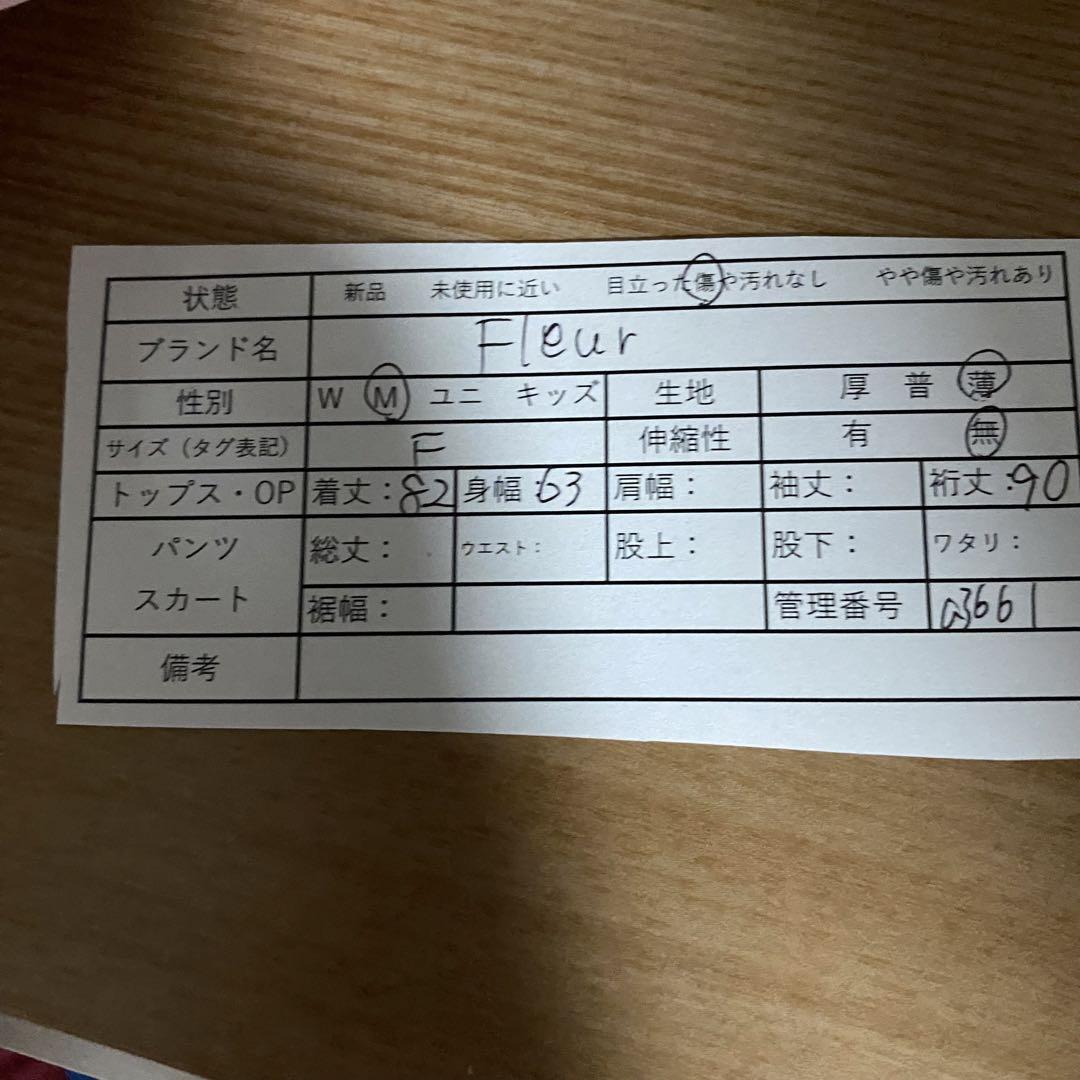 状態 新品 未使用に近い 目立った傷や汚れなし やや傷や汚れあり
ブランド名 Fleur
性別 W M ユニ キッズ 生地 厚 普 薄
サイズ（タグ表記） F 伸縮性 有 無
トップス・OP 着丈：82 身幅：63 肩幅： 袖丈： 裄丈：90
パンツ 総丈： ウエスト： 股上： 股下： ワタリ：
スカート 裾幅： 管理番号 a3661
備考